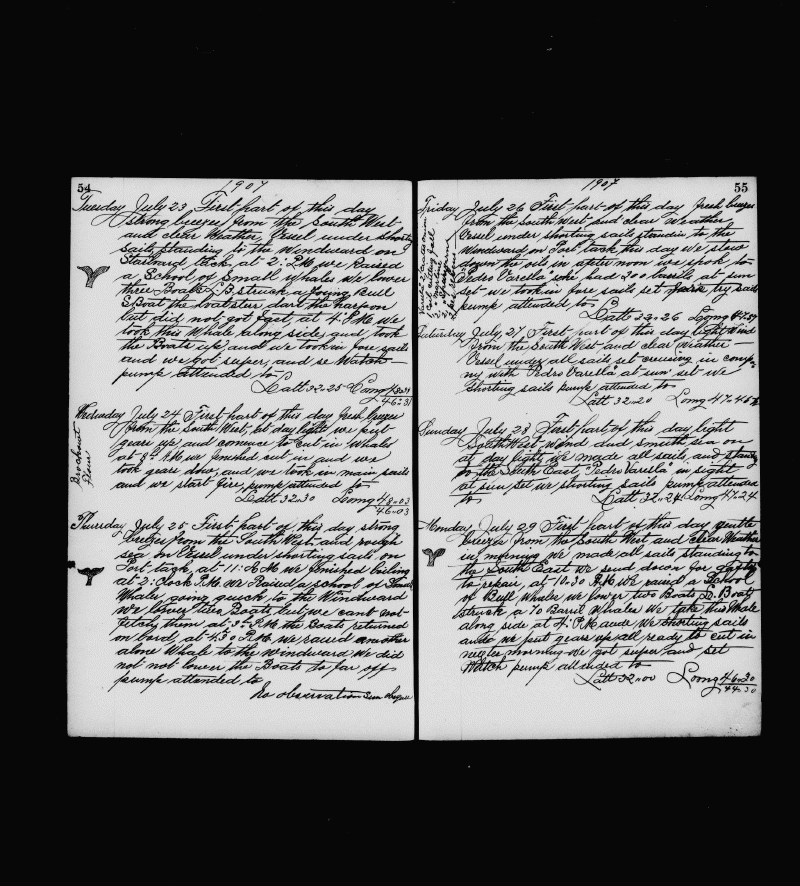 54
1907
Tuesday July 23 First part of this day
strong breeze from the South West
and clear Weather Vessel under shorting
sails standing to the windward on
Starbard tack, at 2: P.M. we Raised
a School of Small whales we lower
three Boats L B struck a Young Bull
Boat the boatsteer dart the harpoon
but did not got fast at 4: P.M. we
took this Whale along side, and took
the Boats up, and we took in fore sails
and we got super, and se Watch
pump attended to
Latt 32-25 Long
46-31
Wednesday July 24 First part of this day fresh breeze
from the South West, at day light we put
gears up and comence to Cut in Whale
at 8 A.M. we finished cut in and we
took gears down, and we took in main sails
and we start fire, pump attended to
Latt 32-30 Long 48-03
46-03
Broak out
Flour
Thursday July 25 First part of this day strong
breezes from the South West and rough
sea on Vessel under shorting sails on
Port tack, at 11: A.M. we finished boiling
at 2: Clock P.M. we Raised a school of
Whales going quick to the Windward
we lower three Boats, but we cant not
fetch them at 3 P.M. the Boats returned
on bord, at 4:30 P.M. we raised another
alone Whale to the windward we did
not not lower the Boats so far off
pump attended to
No observation Sun
55
1907
Friday July 26 First part of this day fresh breeze
from the South West and clear Weather
Vessel under shorting sails standin to the
Windward on Port tack this day we stow
down the oils in after noon we spok to
Pedro Varella soke had 200 barrils at sun
set we took in fore sails set try sails
pump attended to
Latt 32-26 Long 47-57
Saturday July 27 First part of this day light Wind
from the South West and clear Weather
Vessel under all sails set cruising in compa
ny with "Pedro Varella" at sun set we
shorting sails pump attended to
Latt 32-20 Long 47-45
Sunday July 28 First part of this day light
South West wind and smoth sea on
at day light we made all sails, and standg
to the South East "Pedro Varella" in sight
at sun set we shorting sails pump attended
to Latt 32-24 Long 47-24
Monday July 29 First part of this day gentle
breeze from the South West and clear Weather
in morning we made all sails standing to
the South East we send down for
to repair, at 10-30 A.M. we raised a School
of Bull Whales we lower two Boats L. Boat
struck a 70 Barril Whales we take this Whale
along side at 4: P.M. we shorting sails
we put gears up all ready to cut in
morning we got super, and set
Watch pump attended to
Latt 32-00 Long 46-30
44-30